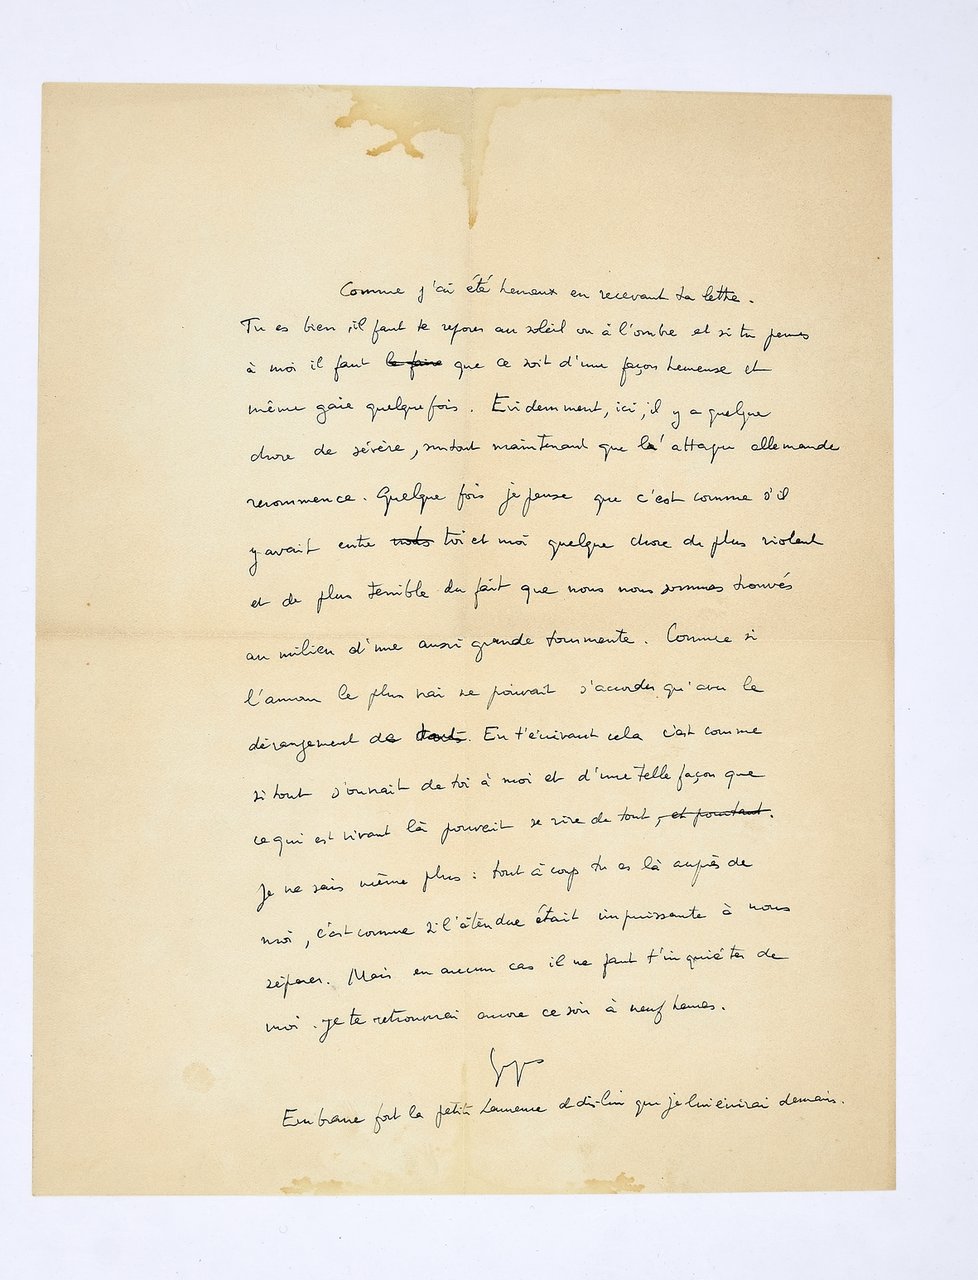 Comme j'ai été heureux en recevant ta lettre.
Tu es bien, il faut te reposer au soleil ou à l'ombre et si tu penses
à moi il faut le faire que ce soit d'une façon heureuse et
même gaie quelquefois. Evidemment, ici, il y a quelque
chose de sévère, surtout maintenant que l'attaque allemande
recommence. Quelque fois je pense que c'est comme s'il
y avait entre nous toi et moi quelque chose de plus violent
et de plus terrible du fait que nous nous sommes trouvés
au milieu d'une aussi grande tourmente. Comme si
l'amour le plus vrai ne pouvait s'accorder qu'avec le
dérangement de tout. En t'écrivant cela c'est comme
si tout s'ouvrait de toi à moi et d'une telle façon que
ce qui est vivant là pouvait se rire de tout, et pourtant.
Je ne sais même plus : tout à coup tu es là auprès de
moi, c'est comme si l'étendue était impuissante à nous
séparer. Mais en aucun cas il ne faut t'inquiéter de
moi. Je te retrouverai encore ce soir à neuf heures.
Embrasse fort la petite Laurence et dis-lui que je lui écrirai demain.